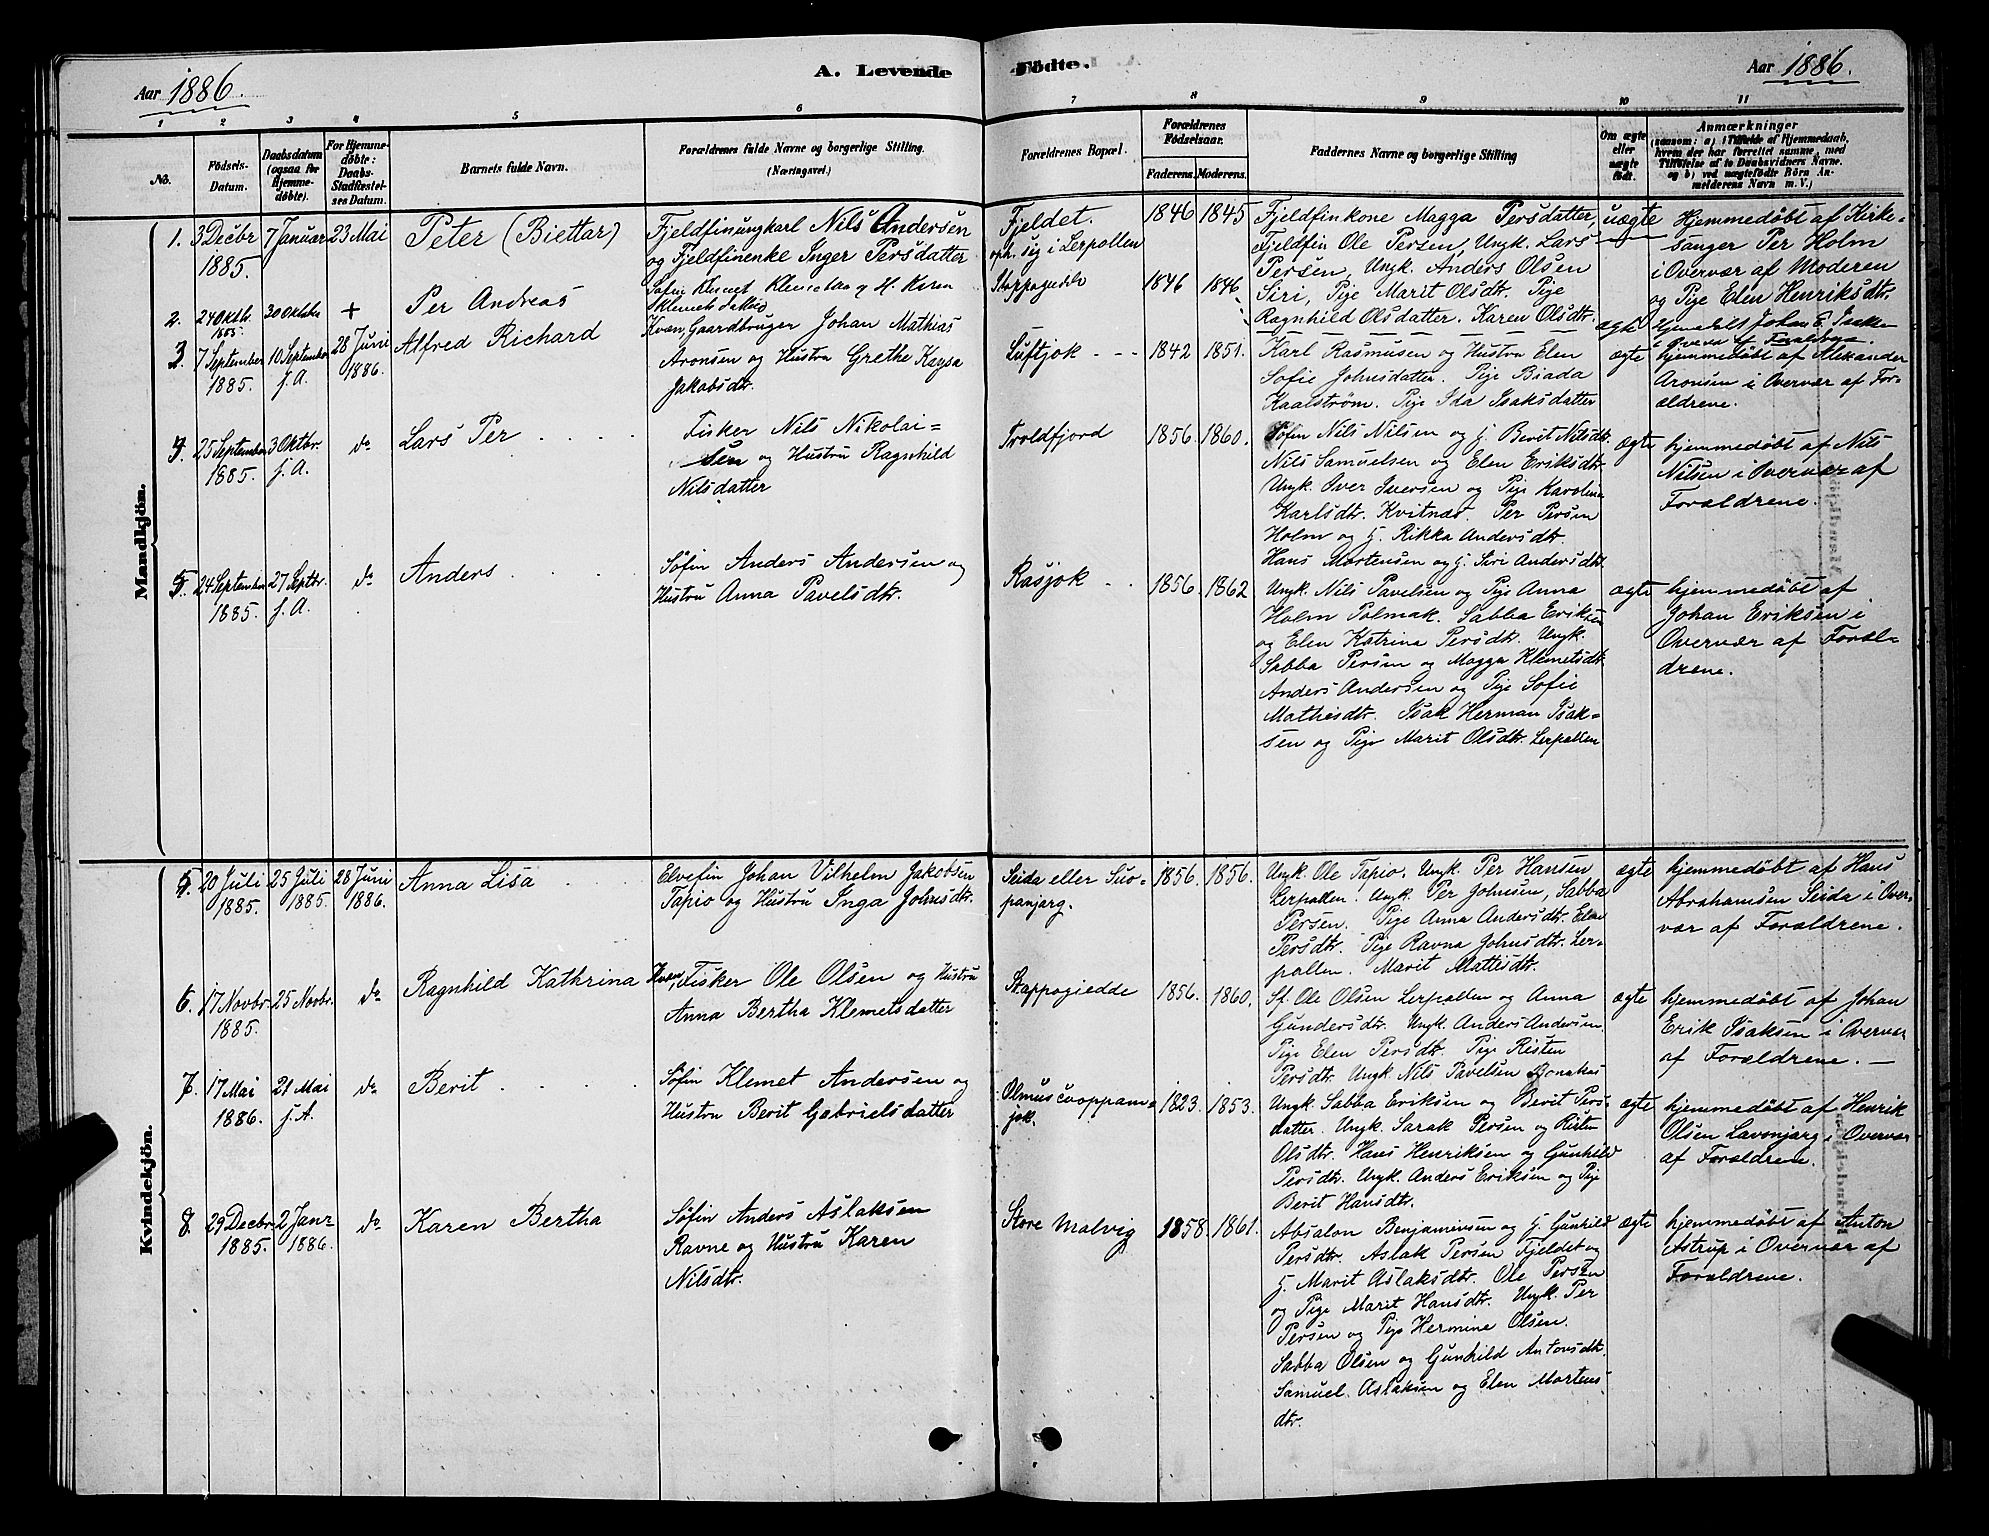 Aar 1886.
A. Levende
Fødte.
Aar 1886.
1 2 3 4 5 6 7 8 9 10 11
No.
Fødsels-
Datum.
Daabsdatum
(ogsaa for
Hjemme-
døbte).
For Hjemme-
døbte:
Daabs-
Stadfæstel-
ses Datum.
Barnets fulde Navn.
Forældrenes fulde Navne og borgerlige Stilling.
(Næringsvei.)
Forældrenes Bopæl.
Forældrenes
Fødselsaar.
Faderens. Moderens.
Faddernes Navne og borgerlige Stilling
Om ægte
eller
uægte
født.
Anmærkninger
(saasom: a) i Tilfælde af Hjemmedaab,
hvem der har forrettet samme, med
Tilføielse af to Daabsvidners Navne.
og b) ved uægtefødte Börn An-
melderens Navn m. V.)
Mandkjön.
1. 3 Decbr
1885.
7 Januar
23 Mai
Peter (Biettar)
Fjeldfinungkarl Nils Andersen
og Fjeldfinenke Inger Persdatter
Fjeldet.
oph. sig i Lerpollen
1846 1845
Fjeldfinkone Magga Persdatter,
Fjeldfin Ole Persen, Ungk. Lars
Persen, Ungk. Anders Olsen
Siri, Pige Marit Olsdtr. Pige
Ragnhild Olsdatter. Karen Olsdtr.
uægte
Hjemmedøbt af Kirke-
sanger Per Holm
i Overvær af Moderen
og Pige Elen Henriksdtr.
2. 24 Oktbr.
1885.
30 Oktbr
+
Per Andreas
Søfin Klemet Klemetsen og H. Karen
Klemetsdatter
Stappogiedde
1846 1846
ægte
Hjemdøbt Johan E. Isaksen
i Overv. af Forældrene.
3 7 September
1885.
10 September
f. A.
28 Juni
1886.
Alfred Richard
Kvæn, Gaardbruger Johan Mathias
Aronsen og Hustru Grethe Kaysa
Jakobsdtr.
Luftjok
1842 1851.
Karl Rasmusen og Hustru Elen
Sofie Johnsdatter. Pige Biada
Kaalstrøm. Pige Ida Isaksdatter
ægte
hjemmedøbt af Alexander
Aronsen i Overvær af For-
ældrene.
4. 25 September
1885.
3 Oktbr.
f. A.
do
Lars Per
Fisker Nils Nikolai-
sen og Hustru Ragnhild
Nilsdatter
Troldfjord
1856. 1860.
Søfin Nils Nilsen og H. Berit Nilsdtr.
Nils Samuelsen og Elen Eriksdtr.
Ungk. Iver Iversen og Pige Karolina
Karlsdtr. Kvitnæs. Per Persen
Holm og H. Rikka Andersdtr.
Hans Mortensen og H. Siri Andersdtr.
ægte
hjemmedøbt af Nils
Nilsen i Overvær af
Forældrene.
5. 24 September
1885.
27 Septbr.
f. A.
do
Anders
Søfin Anders Andersen og
Hustru Anna Pavelsdtr.
Rasjok
1856. 1862
Ungk. Nils Pavelsen og Pige Anna
Holm Polmak. Sabba Eriksen
og Elen Katrina Persdtr. Ungk.
Sabba Persen og Magga Klemetsdtr.
Anders Andersen og Pige Sofie
Mathisdtr. Isak Herman Isak-
sen og Pige Marit Olsdtr. Lerpollen
ægte
hjemmedøbt af
Johan Eriksen i
Overvær af Foræl-
drene.
Kvindekjön.
5. 20 Juli
1885.
25 Juli
1885.
28 Juni
1886.
Anna Lisa
Elvefin Johan Vilhelm Jakobsen
Tapio og Hustru Inga Johnsdtr.
Seida eller Suo-
panjarg.
1856. 1856.
Ungk. Ole Tapio. Ungk. Per Hansen
Lerpollen. Ungk. Per Johnsen, Sabba
Persen. Pige Anna Andersdtr. Elen
Persdtr. Pige Ravna Johnsdtr. Ler-
pollen. Marit Mattisdtr.
ægte
hjemmedøbt af Hans
Abrahamsen Seida i Over-
vær af Forældrene.
6. 17 Novbr.
1885.
25 Novbr.
do
Ragnhild Kathrina
Kvæn, Fisker Ole Olsen og Hustru
Anna Bertha Klemetsdatter
Stappogiedde
1856. 1860.
Sf. Ole Olsen Lerpollen og Anna
Gundersdtr. Ungk. Anders Andersen
Pige Elen Persdtr. Pige Risten
Persdtr. Ungk. Nils Pavelsen Bonakas
ægte
hjemmedøbt af Johan
Erik Isaksen i Overvær
af Forældrene. —
7. 17 Mai
1886.
21 Mai
f. A.
do
Berit
Søfin Klemet Andersen og
Hustru Berit Gabrielsdatter
Olmuscuoppam-
jok.
1823. 1853.
Ungk. Sabba Eriksen og Berit Pers-
datter. Ungk. Sarak Persen og Risten
Olsdtr. Hans Henriksen og Gunhild
Persdtr. Ungk. Anders Eriksen og Pige
Berit Hansdtr.
ægte
hjemmedøbt af Henrik
Olsen Lavonjarg i Overvær
af Forældrene.
8. 29 Decbr.
1885.
2 Janr
1886.
do
Karen Bertha
Søfin Anders Aslaksen
Ravne og Hustru Karen
Nilsdtr.
Store Molvig
1858. 1861.
Absalon Benjaminsen og H. Gunhild
Persdtr. Aslak Persen Fjeldet og
H. Marit Aslaksdtr. Ole Persen
og Pige Marit Hansdtr. Ungk. Per
Persen og Pige Hermine Olsen.
Sabba Olsen og Gunhild Antonsdtr.
Samuel Aslaksen og Elen Mortens
dtr.
ægte
hjemmedøbt af Anton
Astrup i Overvær af
Forældrene.